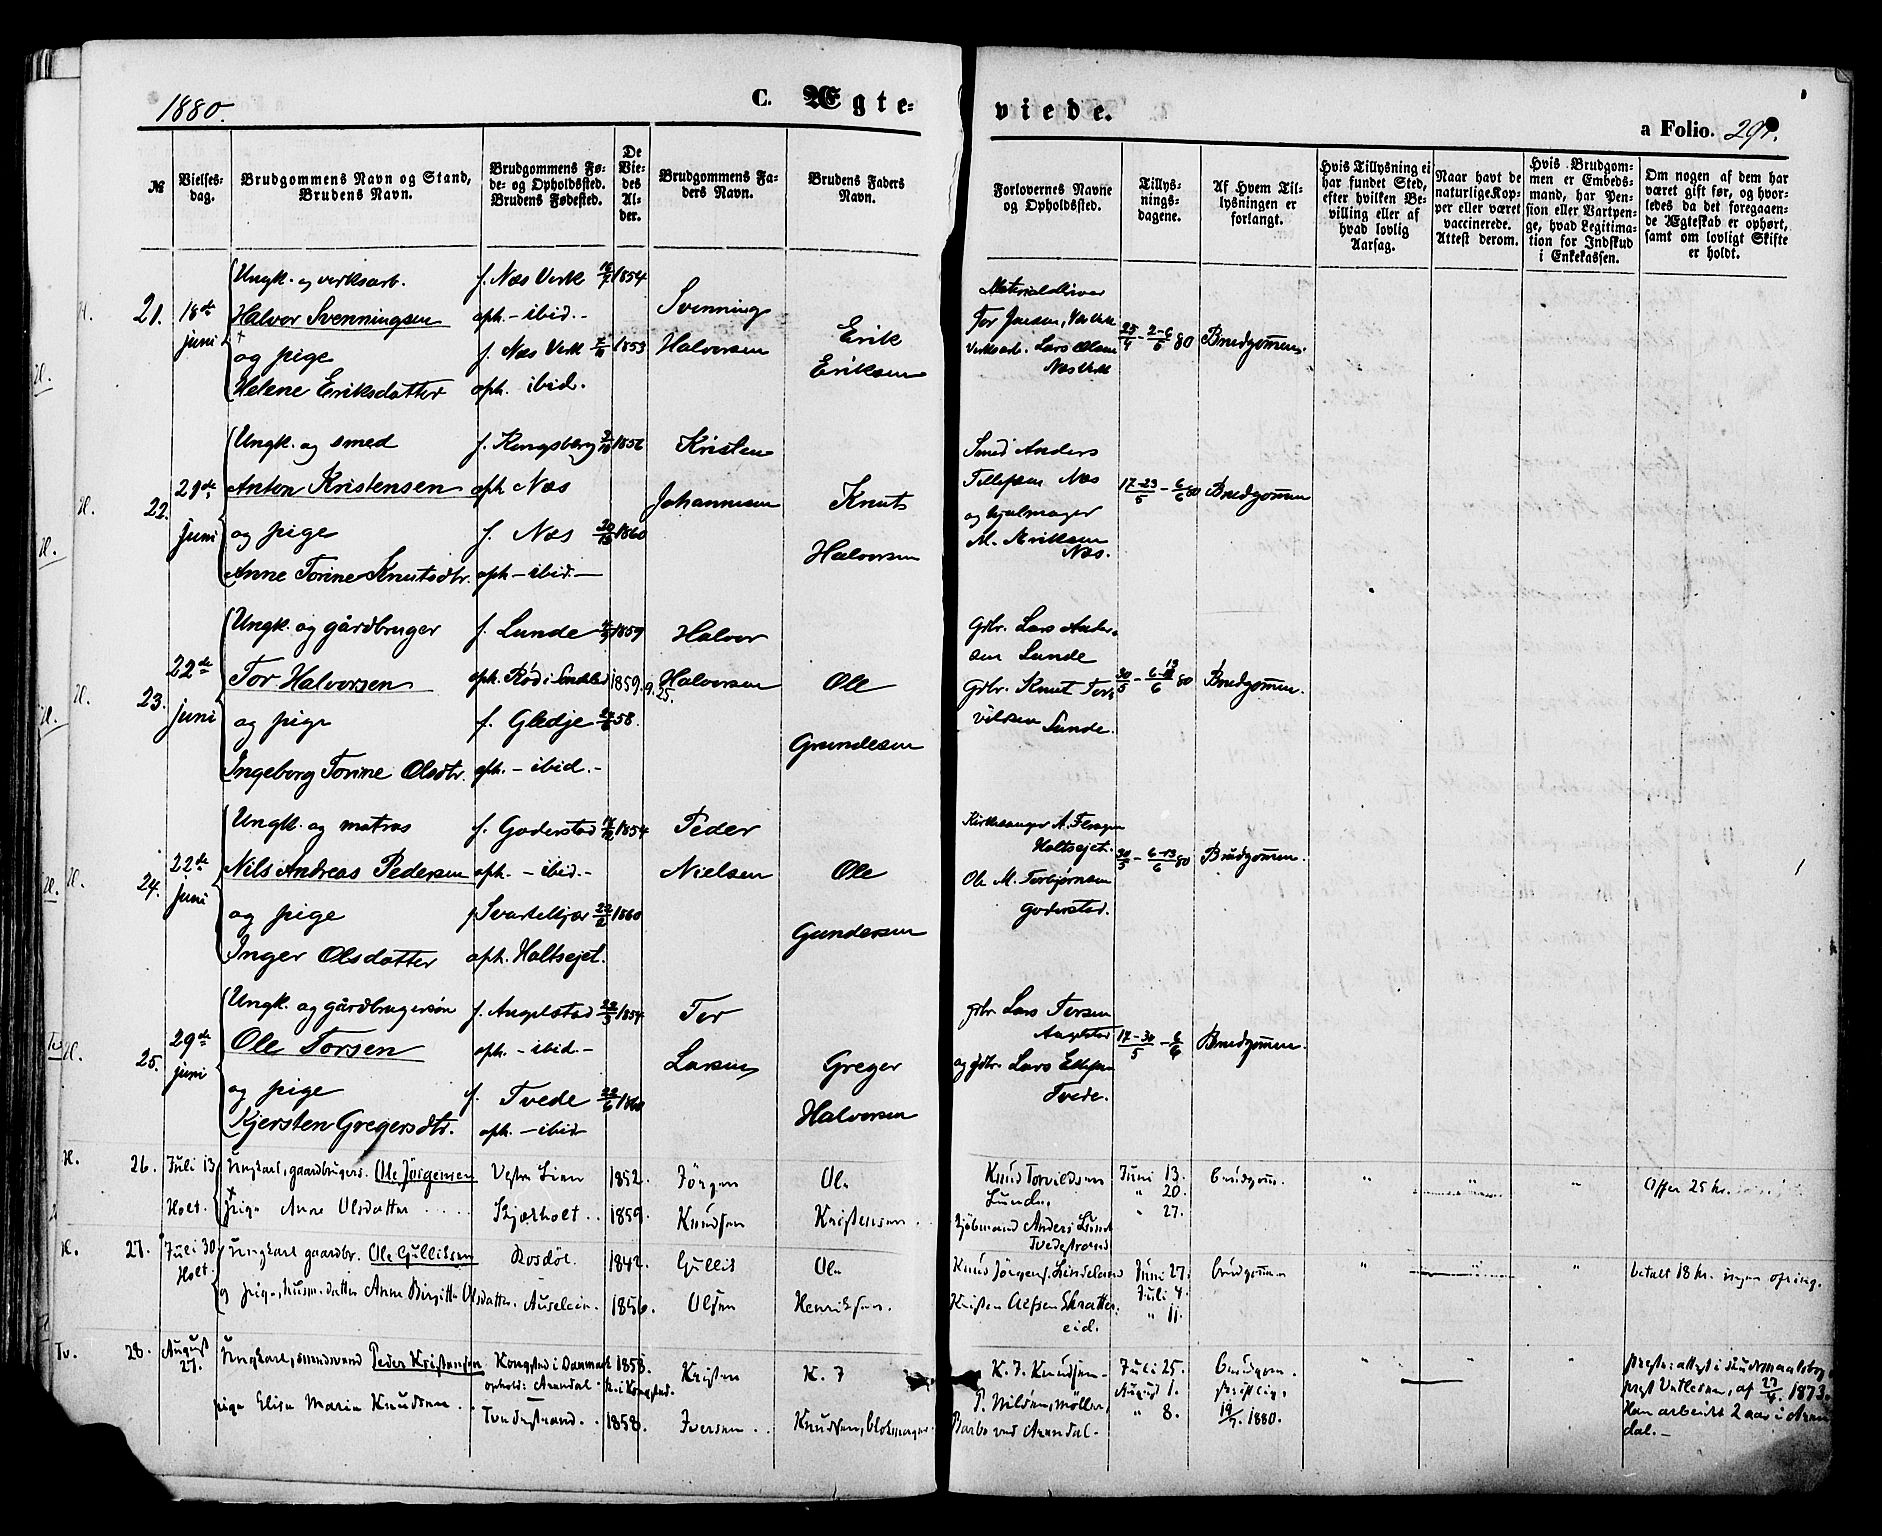 1880.
C. Ægte-
viede.
a Folio. 297.
№
Vielses-
dag.
Brudgommens Navn og Stand,
Brudens Navn.
Brudgommens Fø-
de- og Opholdssted.
Brudens Fødested.
De
Vie-
des
Al-
der.
Brudgommens Fa-
ders Navn.
Brudens Faders
Navn.
Forlovernes Navne
og Opholdssted.
Tillys-
nings-
dagene.
Af Hvem Til-
lysningen er
forlangt.
Hvis Tillysning ei
har fundet Sted,
efter hvilken Be-
villing eller af
hvad lovlig
Aarsag.
Naar havt de
naturlige Kop-
per eller været
vaccinerede.
Attest derom.
Hvis Brudgom-
men er Embeds-
mand, har Pen-
sion eller Vartpen-
ge, hvad Legitima-
tion for Indskud
i Enkekassen.
Om nogen af dem har
været gift før, og hvor-
ledes da det foregaaen-
de Ægteskab er ophørt,
samt om lovligt Skifte
er holdt.
H. 21. 18de juni
Ungk. og verksarb. f. Næs Verk 1854
Halvor Svenningsen oph. - ibid. -
og pige f. Næs Verk 1853
Helene Eriksdatter oph. ibid.
Svenning
Halvorsen
Erik
Eriksen
Tor Jensen,
Verksarb. Lars Olsen
Næs Verk
25/4 - 2-6/6 80 Brudgommen.
H. 22. 21de juni
Ungk. og smed f. Kongsberg 1856
Anton Kristensen oph Næs
og pige f. Næs 1860
Anne Torine Knutsdtr. oph - ibid. -
Kristen
Johannesen
Knut
Halvorsen
Smed Anders
Tellefsen Næs
og hjulmager
M. Eriksen
Næs.
17-23/5 - 6/6 80 Brudgommen
H. 23. 22de juni
Ungk. og gårdbruger f. Lunde 1859
Tor Halvorsen oph. Rød i Søndeled 1859. 9. 25.
og pige f. Gledje 58.
Ingeborg Torine Olsdtr. oph. - ibid. -
Halvor
Halvorsen
Ole
Grundesen
Grbr. Lars Ander-
sen Lunde
Grbr. Knut Tor-
vildsen Lunde.
30/5 - 6-13/6 80 Brudgommen.
H. 24. 22de juni
Ungk. og matros f. Goderstad 1854
Nils Andreas Pedersen oph. - ibid. -
og pige f Svartekjær 1860
Inger Olsdatter oph. Holtsejet.
Peder
Nielsen
Ole
Gundersen
Kirkesanger A. Flaxen
Holtsejet.
Ole M. Torbjørnsen
Goderstad.
30/5 - 6-13/6 80 Brudgommen.
H. 25. 29de juni
Ungk. og gårdbrugersøn f. Angelstad 22/3 1854
Ole Torsen oph. - ibid -
og pige f. Tvede 22/6 1860
Kjersten Gregersdtr. oph. - ibid
Tor
Larsen
Greger
Halvorsen
grbr Lars Torsen
Angelstad
og grbr. Lars Ellefsen
Tvede.
17-30/5 - 6/6 Brudgommen.
H. 26. Juli 13 Holt.
Ungkarl, gaardbrugers. Ole Jørgensen Vestre Lien 1852.
pige Anne Olsdatter Skjærholt 1859.
Jørgen
Knudsen
Ole
Kristensen
Knud Torvildsen
Lunde.
Kjøbmand Anders Lund
Tvedestrand
Juni 13. " 20. " 27. brudgom.
" " " Offer 25 kr.
H. 27. Juli 30 Holt.
Ungkarl gaardbr. Ole Gulliksen Rosdøl 1842.
og pige, husm. datter Anne Birgitte Olsdatter. Auselein. 1856.
Gullik
Olsen
Ole
Henriksen.
Knud Jørgens. Lindeland
Kristen Alefsen Skratter-
eid.
Juni 27. Juli 4. " 11. brudgommen
" " " betalt 18 kr. ingen ofring.
Tv. 28. August 27.
Ungkarl, smedsvend Peder Kristensen Kongsted i Danmark 1853.
ophold: Arendal
pige Elise Marie Knudsen Tvedestrand. 1858.
Kristen
Iversen
K. J.
Knudsen, blokmager
K. J. Knudsen -
P. Nilsen, møller,
Barbo ved Arendal -
Juli 25. August 1. " 8. brudgom. skriftlig. 19/7. 1880.
" " præsteattest i skudsmaalsbog
1873.
Han arbeidet 2 aar i Aren-
dal. -